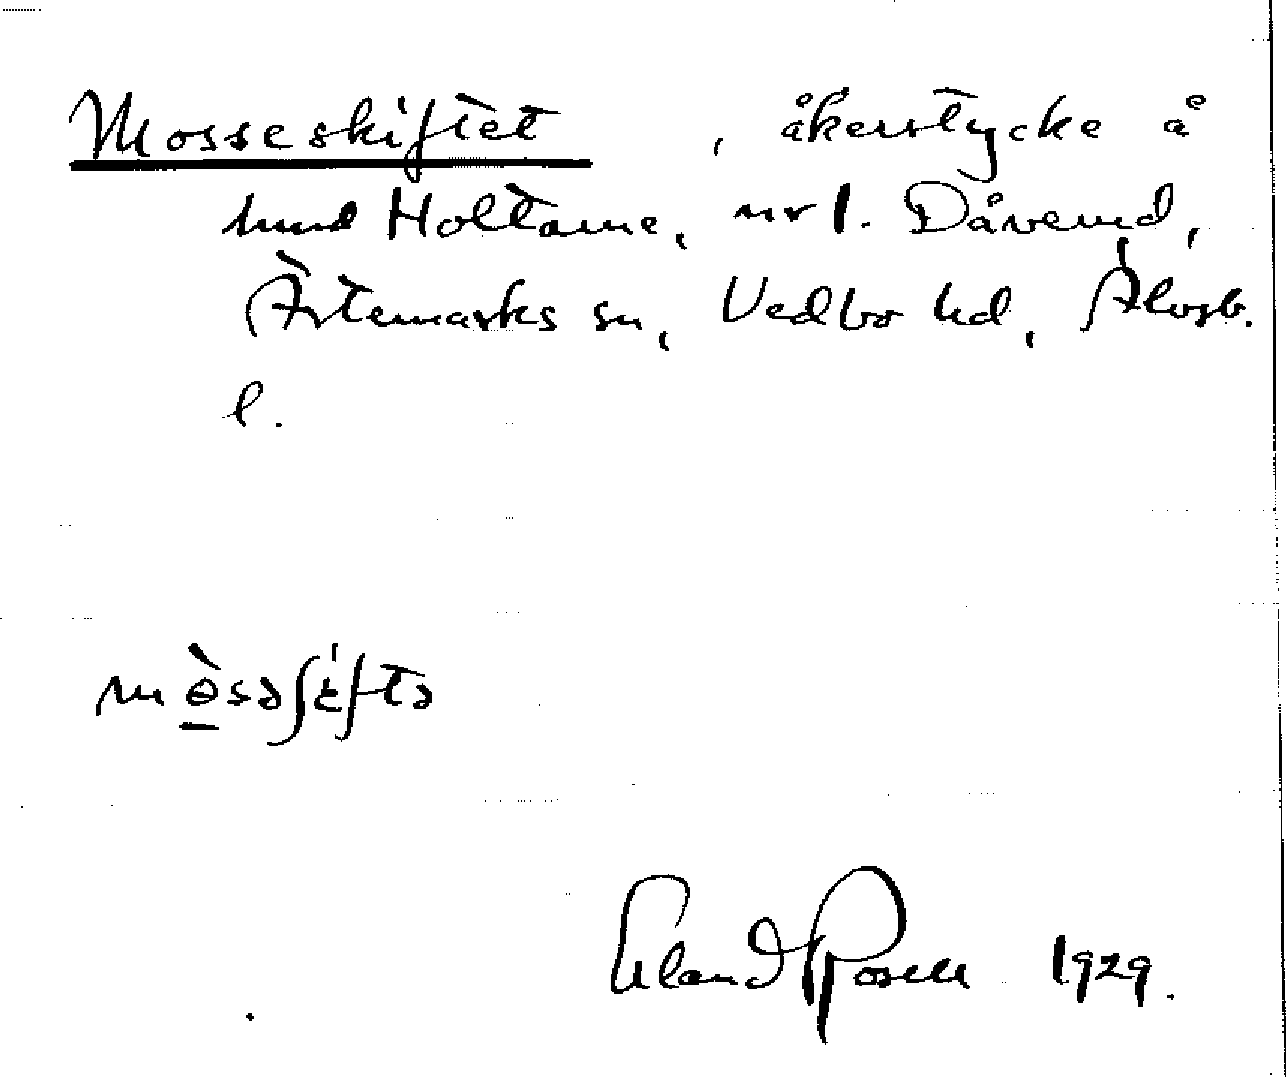 Mosseskiftet , åkerstycke å
hmd Holtane, nr 1. Dåverud,
Ärtemarks sn, Vedbo hd, Älvsb.
l.
mɵ̀səʃɨ́ftə
Erland Rosell 1929.